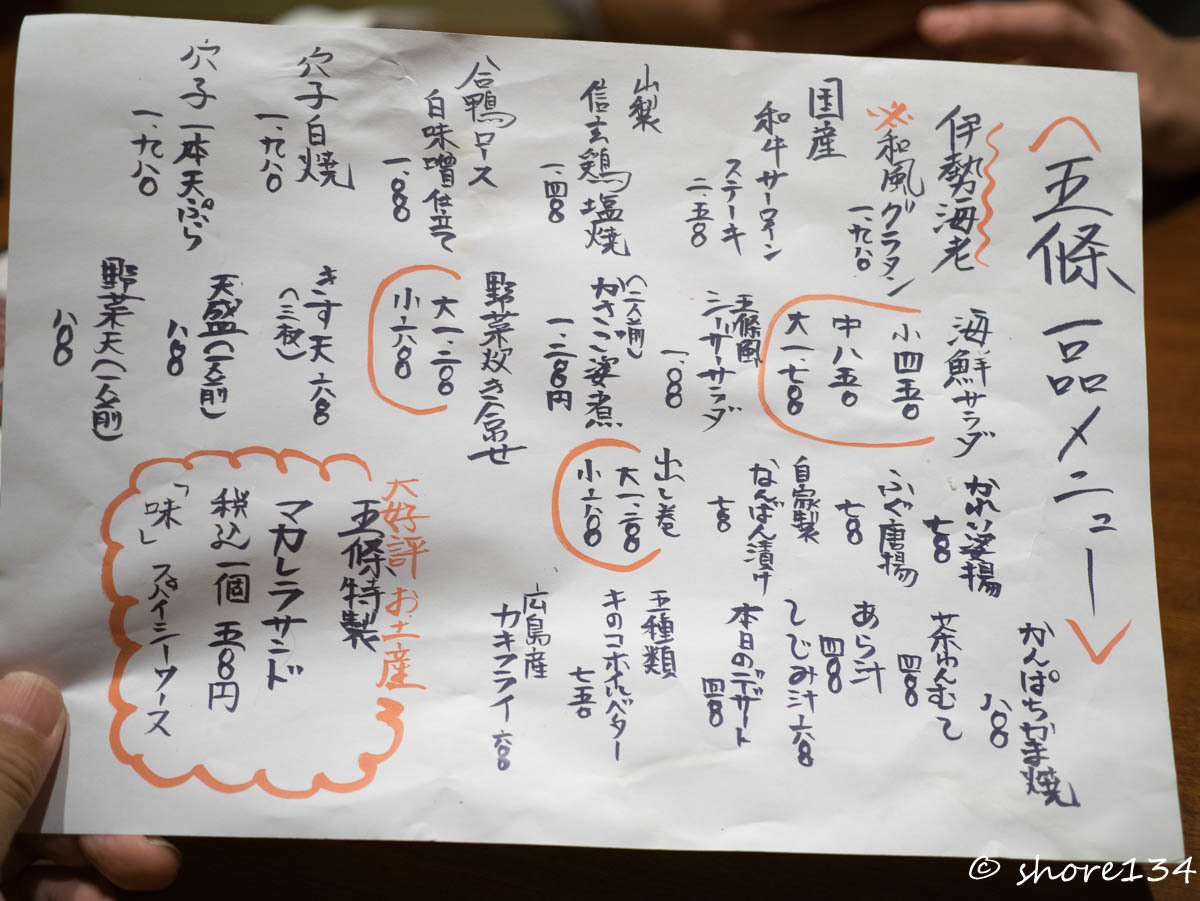 五條一品メニュー
伊勢海老
和風グラタン
一、九八〇
国産
和牛サーロイン
ステーキ
二、五〇〇
山梨
信玄鶏塩焼
合鴨ロース
白味噌仕立て
一、〇〇〇
穴子白焼
一、九八〇
穴子一本天ぷら
一、九八〇
海鮮サラダ
小 四五〇
中 八五〇
五條風
シーザーサラダ
一、〇〇〇
かさご姿煮
(二人前)
野菜炊き合せ
きす天 六〇〇
(三枚)
天盛(一人前)
八〇〇
野菜天(一人前)
八〇〇
かれい姿揚
七〇〇
ふぐ唐揚
七〇〇
自家製
なんばん漬け
七〇〇
出し巻
かんぱちかま焼
八〇〇
茶わんむし
四〇〇
あら汁
四〇〇
しじみ汁 六〇〇
本日のデザート
四〇〇
五種類
キノコホイルバター
七五〇
広島産
カキフライ 六〇〇
大好評 お土産
五條特製
マカレラサンド
税込一個 五〇〇円
「味」 スパイシーソース
© shore134